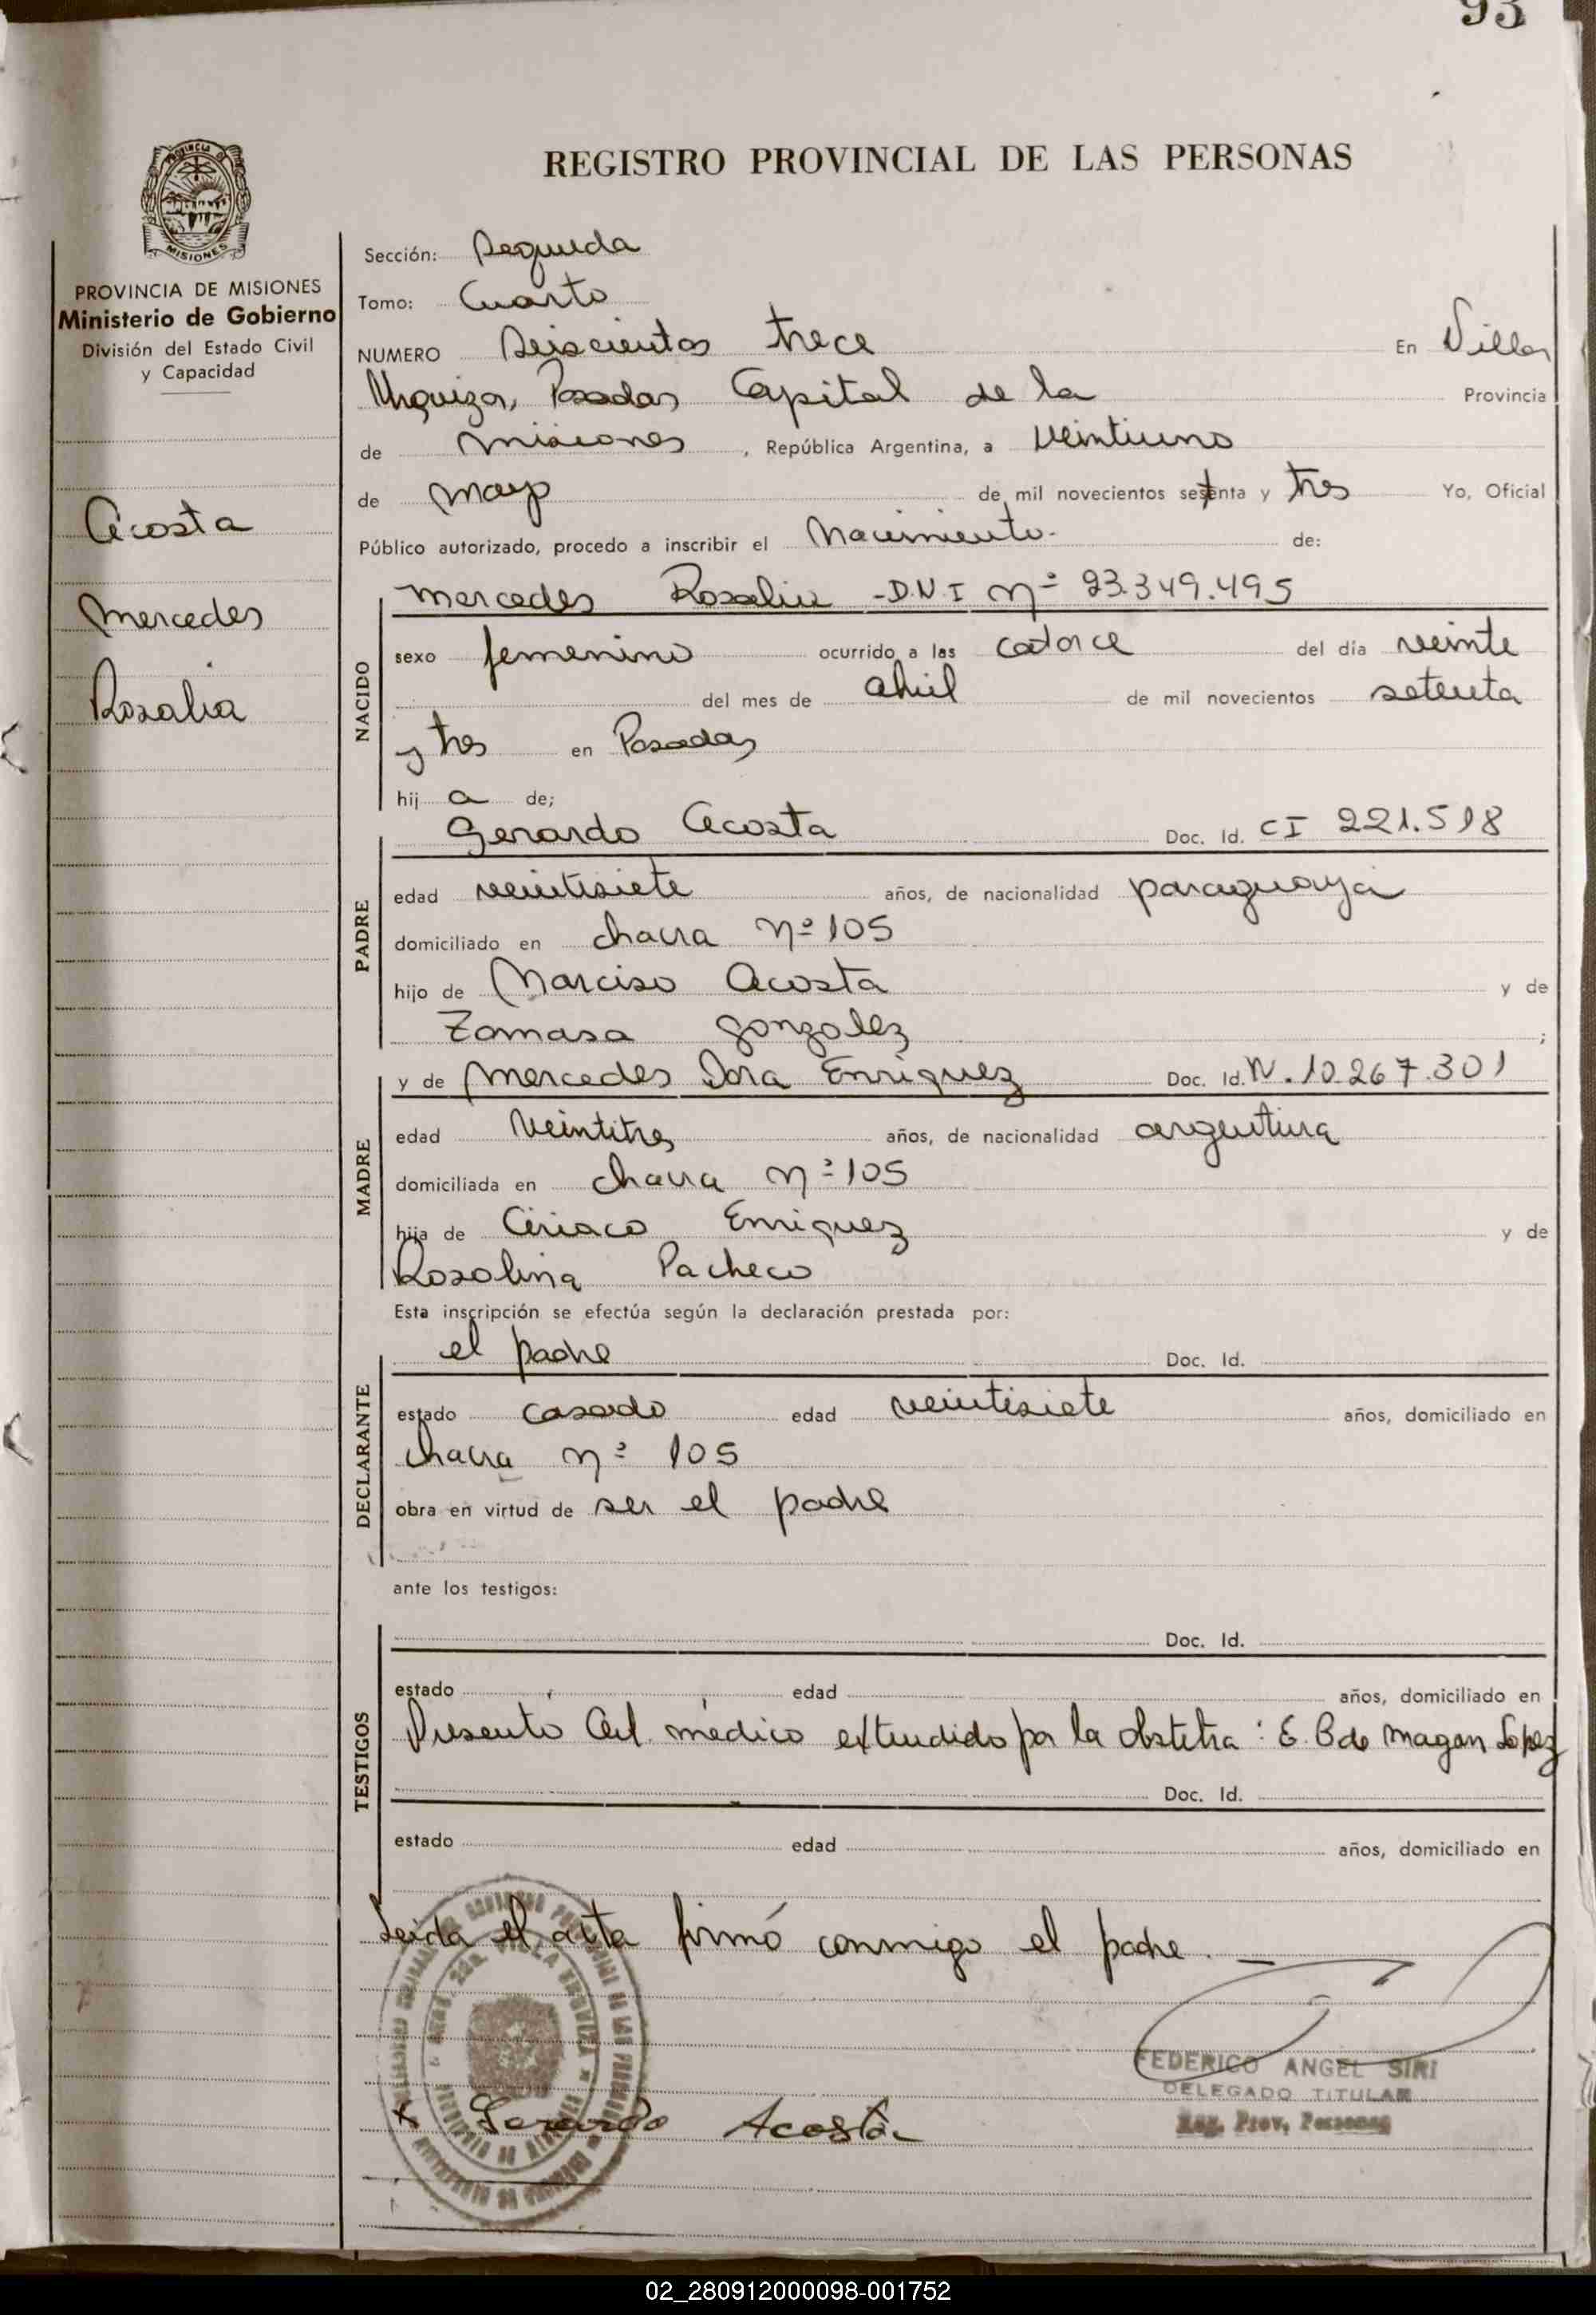 93
REGISTRO PROVINCIAL DE LAS PERSONAS
PROVINCIA DE MISIONES
Ministerio de Gobierno
División del Estado Civil
y Capacidad
Acosta
Mercedes
Rosalia
Sección: Segunda
Tomo: Cuarto
NUMERO Seiscientos trece En Villa
Urquiza, Posadas Capital de la Provincia
de Misiones, República Argentina, a veintiuno
de mayo de mil novecientos setenta y tres Yo, Oficial
Público autorizado, procedo a inscribir el Nacimiento.- de:
NACIDO
Mercedes Rosalia - D.N.I Nº 23.349.495
sexo femenino ocurrido a las catorce del día veinte
del mes de abril de mil novecientos setenta
y tres en Posadas
hija de;
PADRE
Gerardo Acosta Doc. Id. CI 221.518
edad veintisiete años, de nacionalidad paraguaya
domiciliado en chacra Nº 105
hijo de Narciso Acosta y de
Tomasa Gonzalez ;
MADRE
y de Mercedes Dora Enriquez Doc. Id. N. 10.267.301
edad veintitres años, de nacionalidad argentina
domiciliada en chacra Nº 105
hija de Ciriaco Enriquez y de
Rosolina Pacheco
Esta inscripción se efectúa según la declaración prestada por:
DECLARANTE
el padre Doc. Id.
estado casado edad veintisiete años, domiciliado en
chacra Nº 105
obra en virtud de ser el padre
ante los testigos:
TESTIGOS
Doc. Id.
estado edad años, domiciliado en
Presentó Cert. médico extendido por la obstetra: E. B de Magan Lopez
Doc. Id.
estado edad años, domiciliado en
Leida el acta firmó conmigo el padre. —
FEDERICO ANGEL SIRI
DELEGADO TITULAR
Reg. Prov. Personas
x Gerardo Acosta
02_280912000098-001752